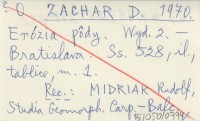 O ZACHAR D. 1970.
Erózia pôdy. Wyd. 2. —
Bratislava. Ss. 528, il.,
tablice, m. 1.
Rec.: MIDRIAK Rudolf,
Studia Geomorph. Carp.-Balc.